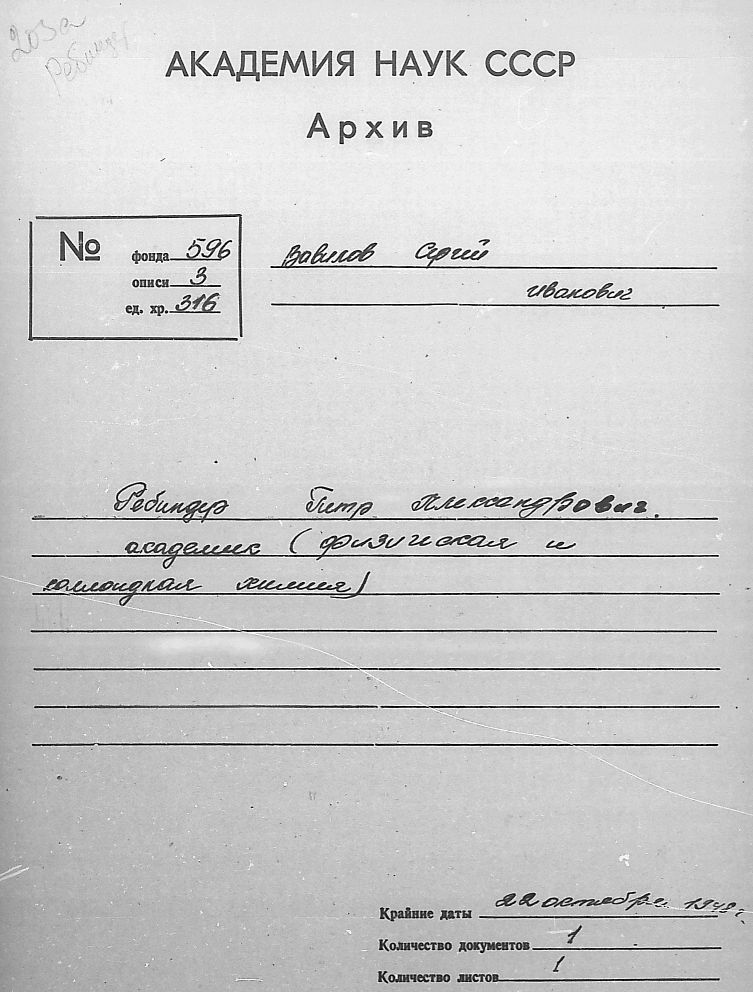 203а
Ребиндер
АКАДЕМИЯ НАУК СССР
Архив
№ фонда 596
описи 3
ед. хр. 316
Вавилов Сергей
Иванович
Ребиндер Петр Александрович.
академик (физическая и
коллоидная химия)
Крайние даты 22 октября 1948 г.
Количество документов 1
Количество листов 1